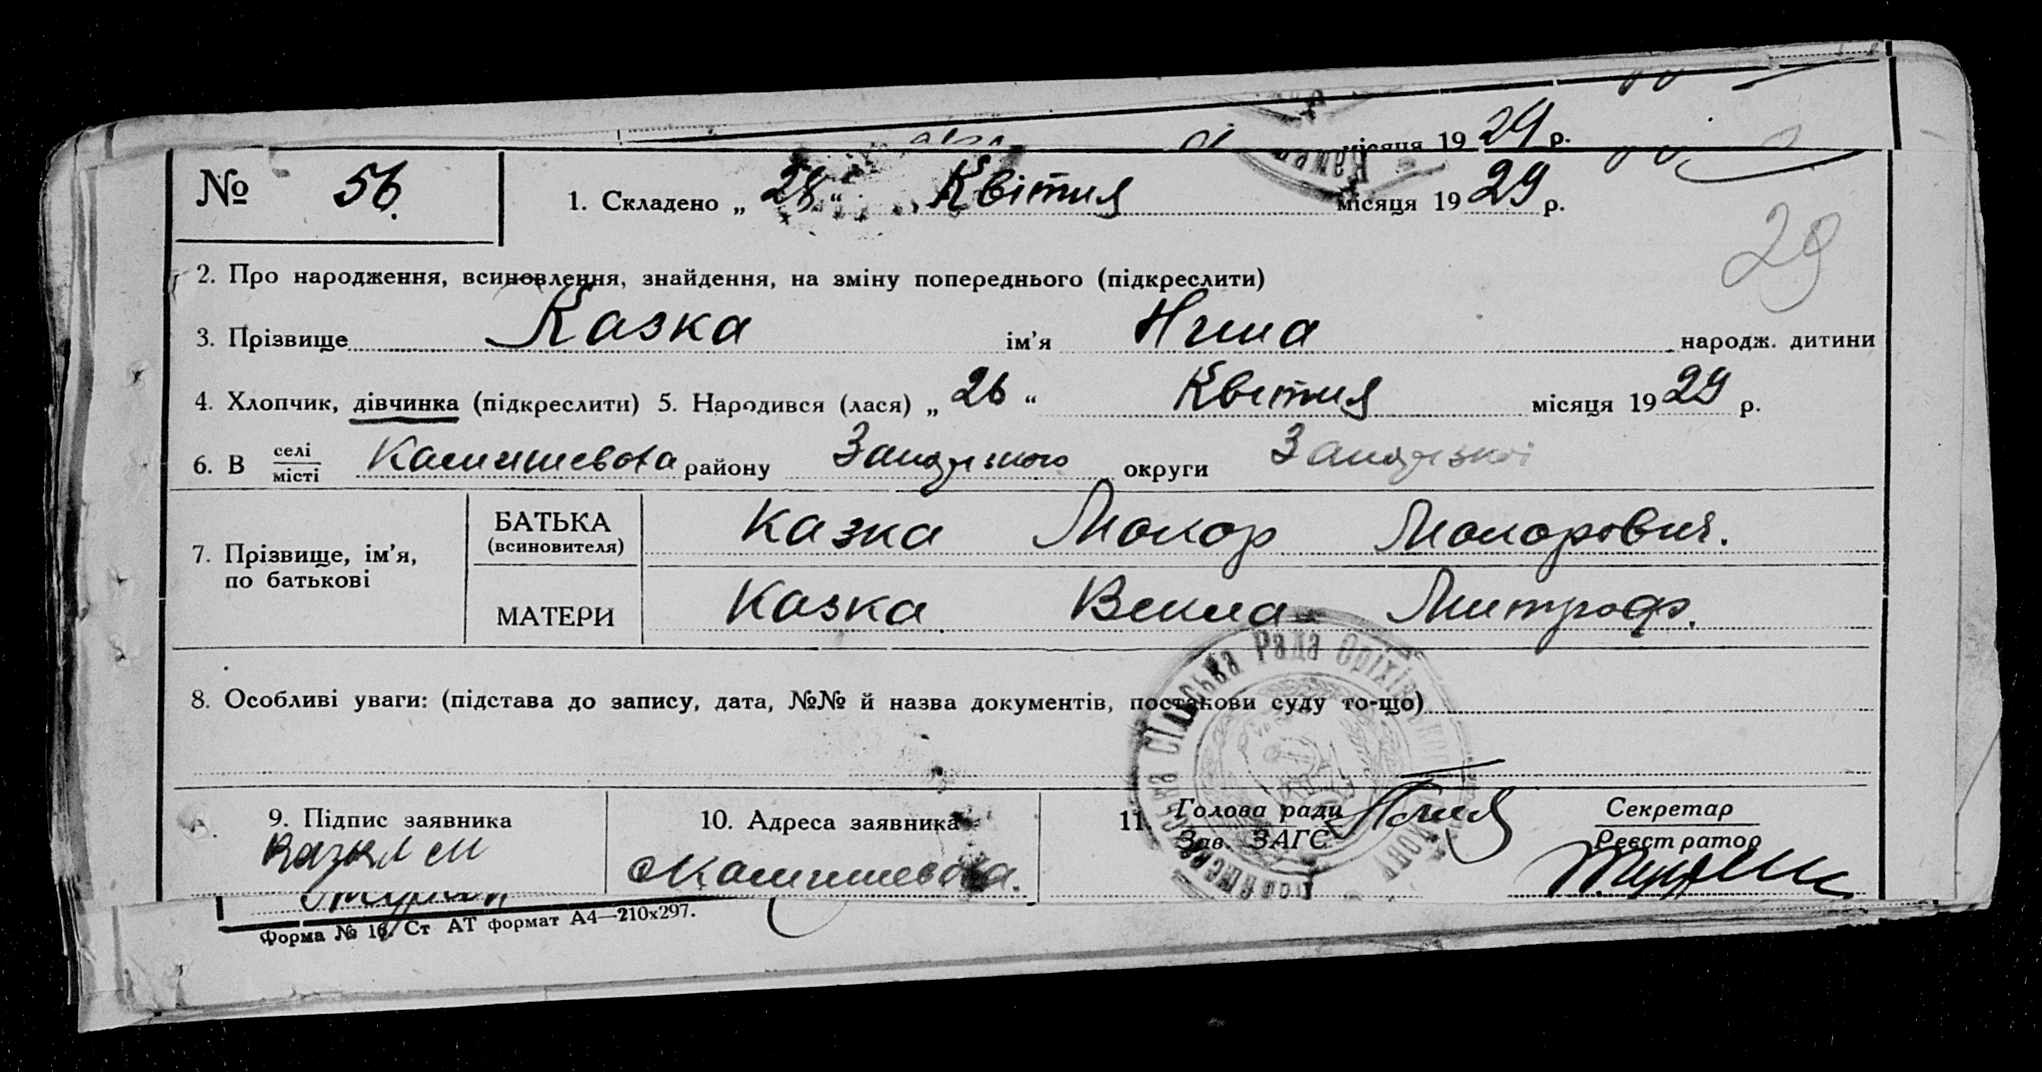 місяця 19 29 р.
№ 56. 1. Складено „ 28 “ Квітня місяця 19 29 р.
29
2. Про народження, всиновлення, знайдення, на зміну попереднього (підкреслити)
3. Прізвище Казка ім’я Нина народж. дитини
4. Хлопчик, дівчинка (підкреслити) 5. Народився (лася) „ 26 “ Квітня місяця 19 29 р.
6. В селі
місті Камишеваха району Запорізького округи Запорізької
7. Прізвище, ім’я,
по батькові
БАТЬКА
(всиновителя)
Казка Макар Макарович.
МАТЕРИ Казка Векла Митроф.
Сільська Рада Оріхів
8. Особливі уваги: (підстава до запису, дата, №№ й назва документів, постанови суду то-що)
9. Підпис заявника
10. Адреса заявника
Камишеваха.
11. Голова ради
Зав. ЗАГС
Секретар
Реєстратор
Форма № 16. Ст АТ формат А4—210х297.